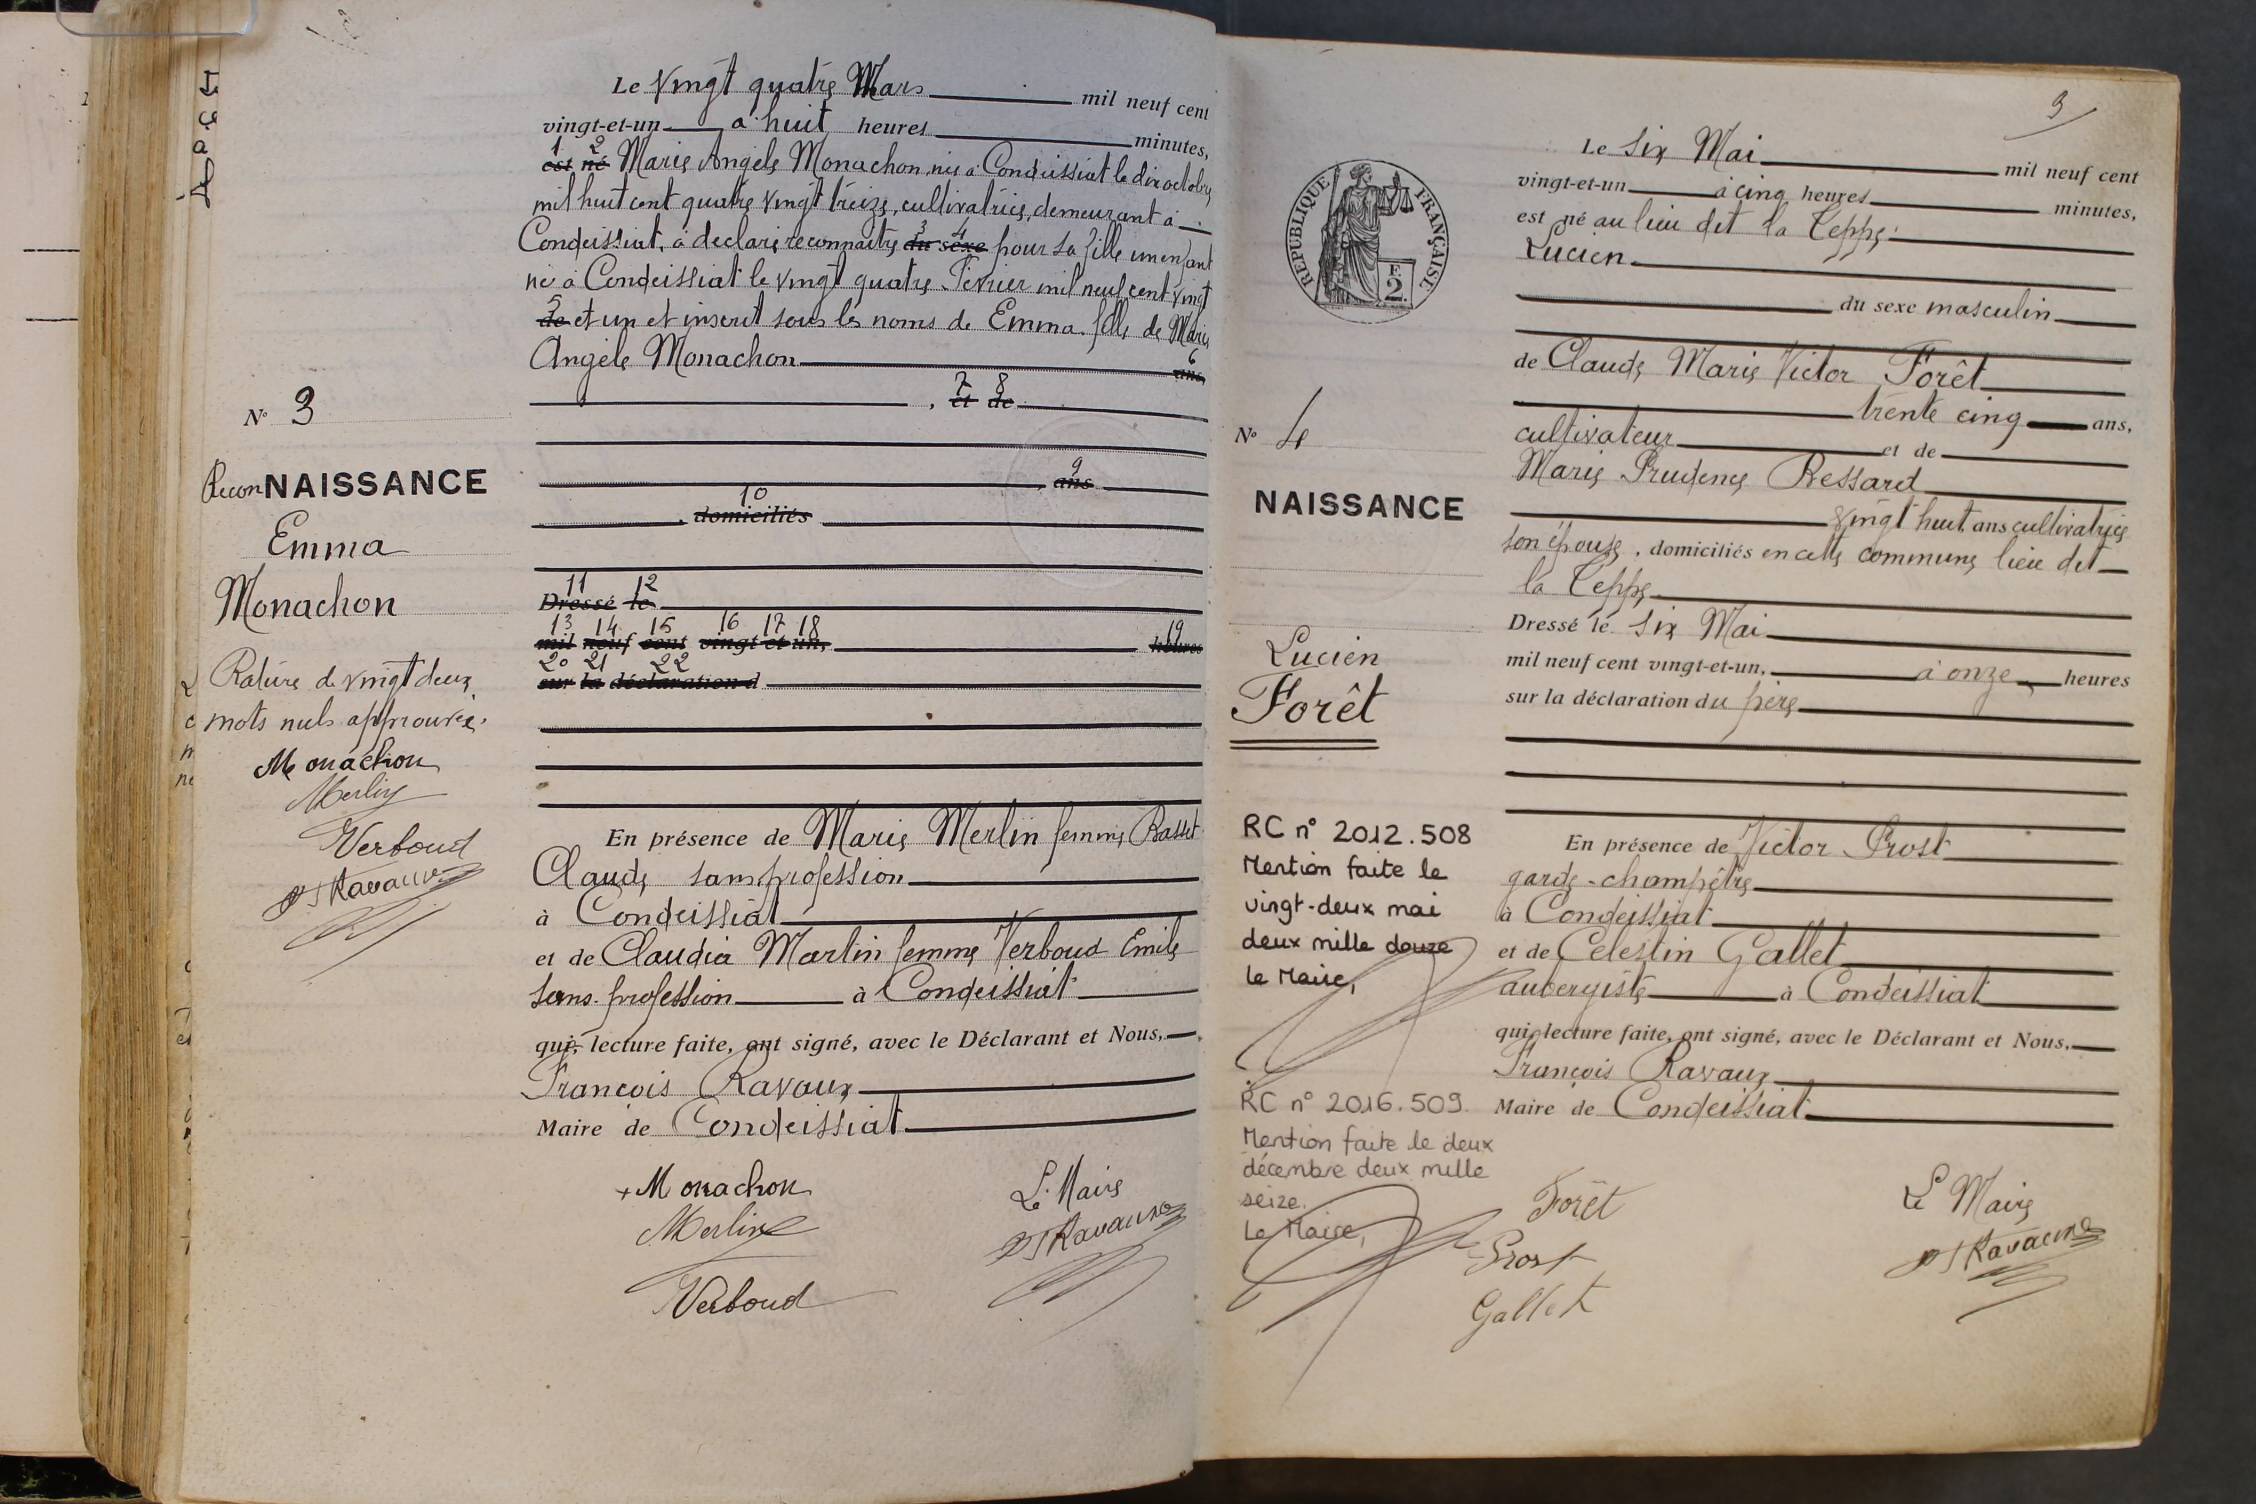 Le Vingt quatre Mars mil neuf cent
vingt-et-un à huit heures minutes,
1 2
est né Marie Angèle Monachon, née à Condeissiat le dix octobre
mil huit cent quatre vingt treize, cultivatrice, demeurant à
Condeissiat, a déclaré reconnaitre du sexe pour sa fille un enfant
3 4
né à Condeissiat le vingt quatre Février mil neuf cent vingt
5
de et un et inscrit sous les noms de Emma fille de Marie
Angèle Monachon
6
ans,
7 8
, et de
9
, ans
10
, domiciliés
11 12
Dressé le
13 14 15 16 17 18 19
mil neuf cent vingt et un, heures
20 21 22
sur la déclaration d
En présence de Marie Merlin femme Basset
Claude sans profession
à Condeissiat
et de Claudia Martin femme Verboud Emile
sans profession à Condeissiat
qui, lecture faite, ont signé, avec le Déclarant et Nous,
François Ravaux
Maire de Condeissiat
Monachon
Merlin
Verboud
Le Maire
Ravaux
N° 3
ReconNAISSANCE
Emma
Monachon
Rature de vingt deux
mots nuls approuvée.
Monachon
Merlin
Verboud
Ravaux
3
Le Six Mai mil neuf cent
vingt-et-un à cinq heures minutes,
est né au lieu dit la Teppe
Lucien
du sexe masculin
de Claude Marie Victor Forêt
trente cinq ans,
cultivateur et de
Marie Prudence Ressard
vingt huit ans cultivatrice
son épouse, domiciliés en cette commune, lieu dit
la Teppe
Dressé le six Mai
mil neuf cent vingt-et-un, à onze heures
sur la déclaration du père
En présence de Victor Prost
garde-champêtre
à Condeissiat
et de Celestin Gallet
aubergiste à Condeissiat
qui, lecture faite, ont signé, avec le Déclarant et Nous,
François Ravaux
Maire de Condeissiat
Forêt
Prost
Gallet
Le Maire
Ravaux
RÉPUBLIQUE FRANÇAISE
F.
2.
N° 4
NAISSANCE
Lucien
Forêt
RC n° 2012.508
Mention faite le
vingt-deux mai
deux mille douze
le Maire,
RC n° 2016.509
Mention faite le deux
décembre deux mille
seize.
Le Maire,